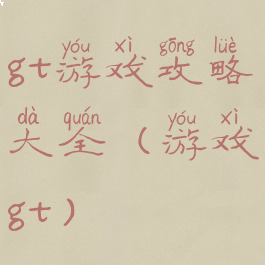 yóu xì gōng lüè
gt游戏攻略
dà quán yóu xì
大全（游戏
gt）